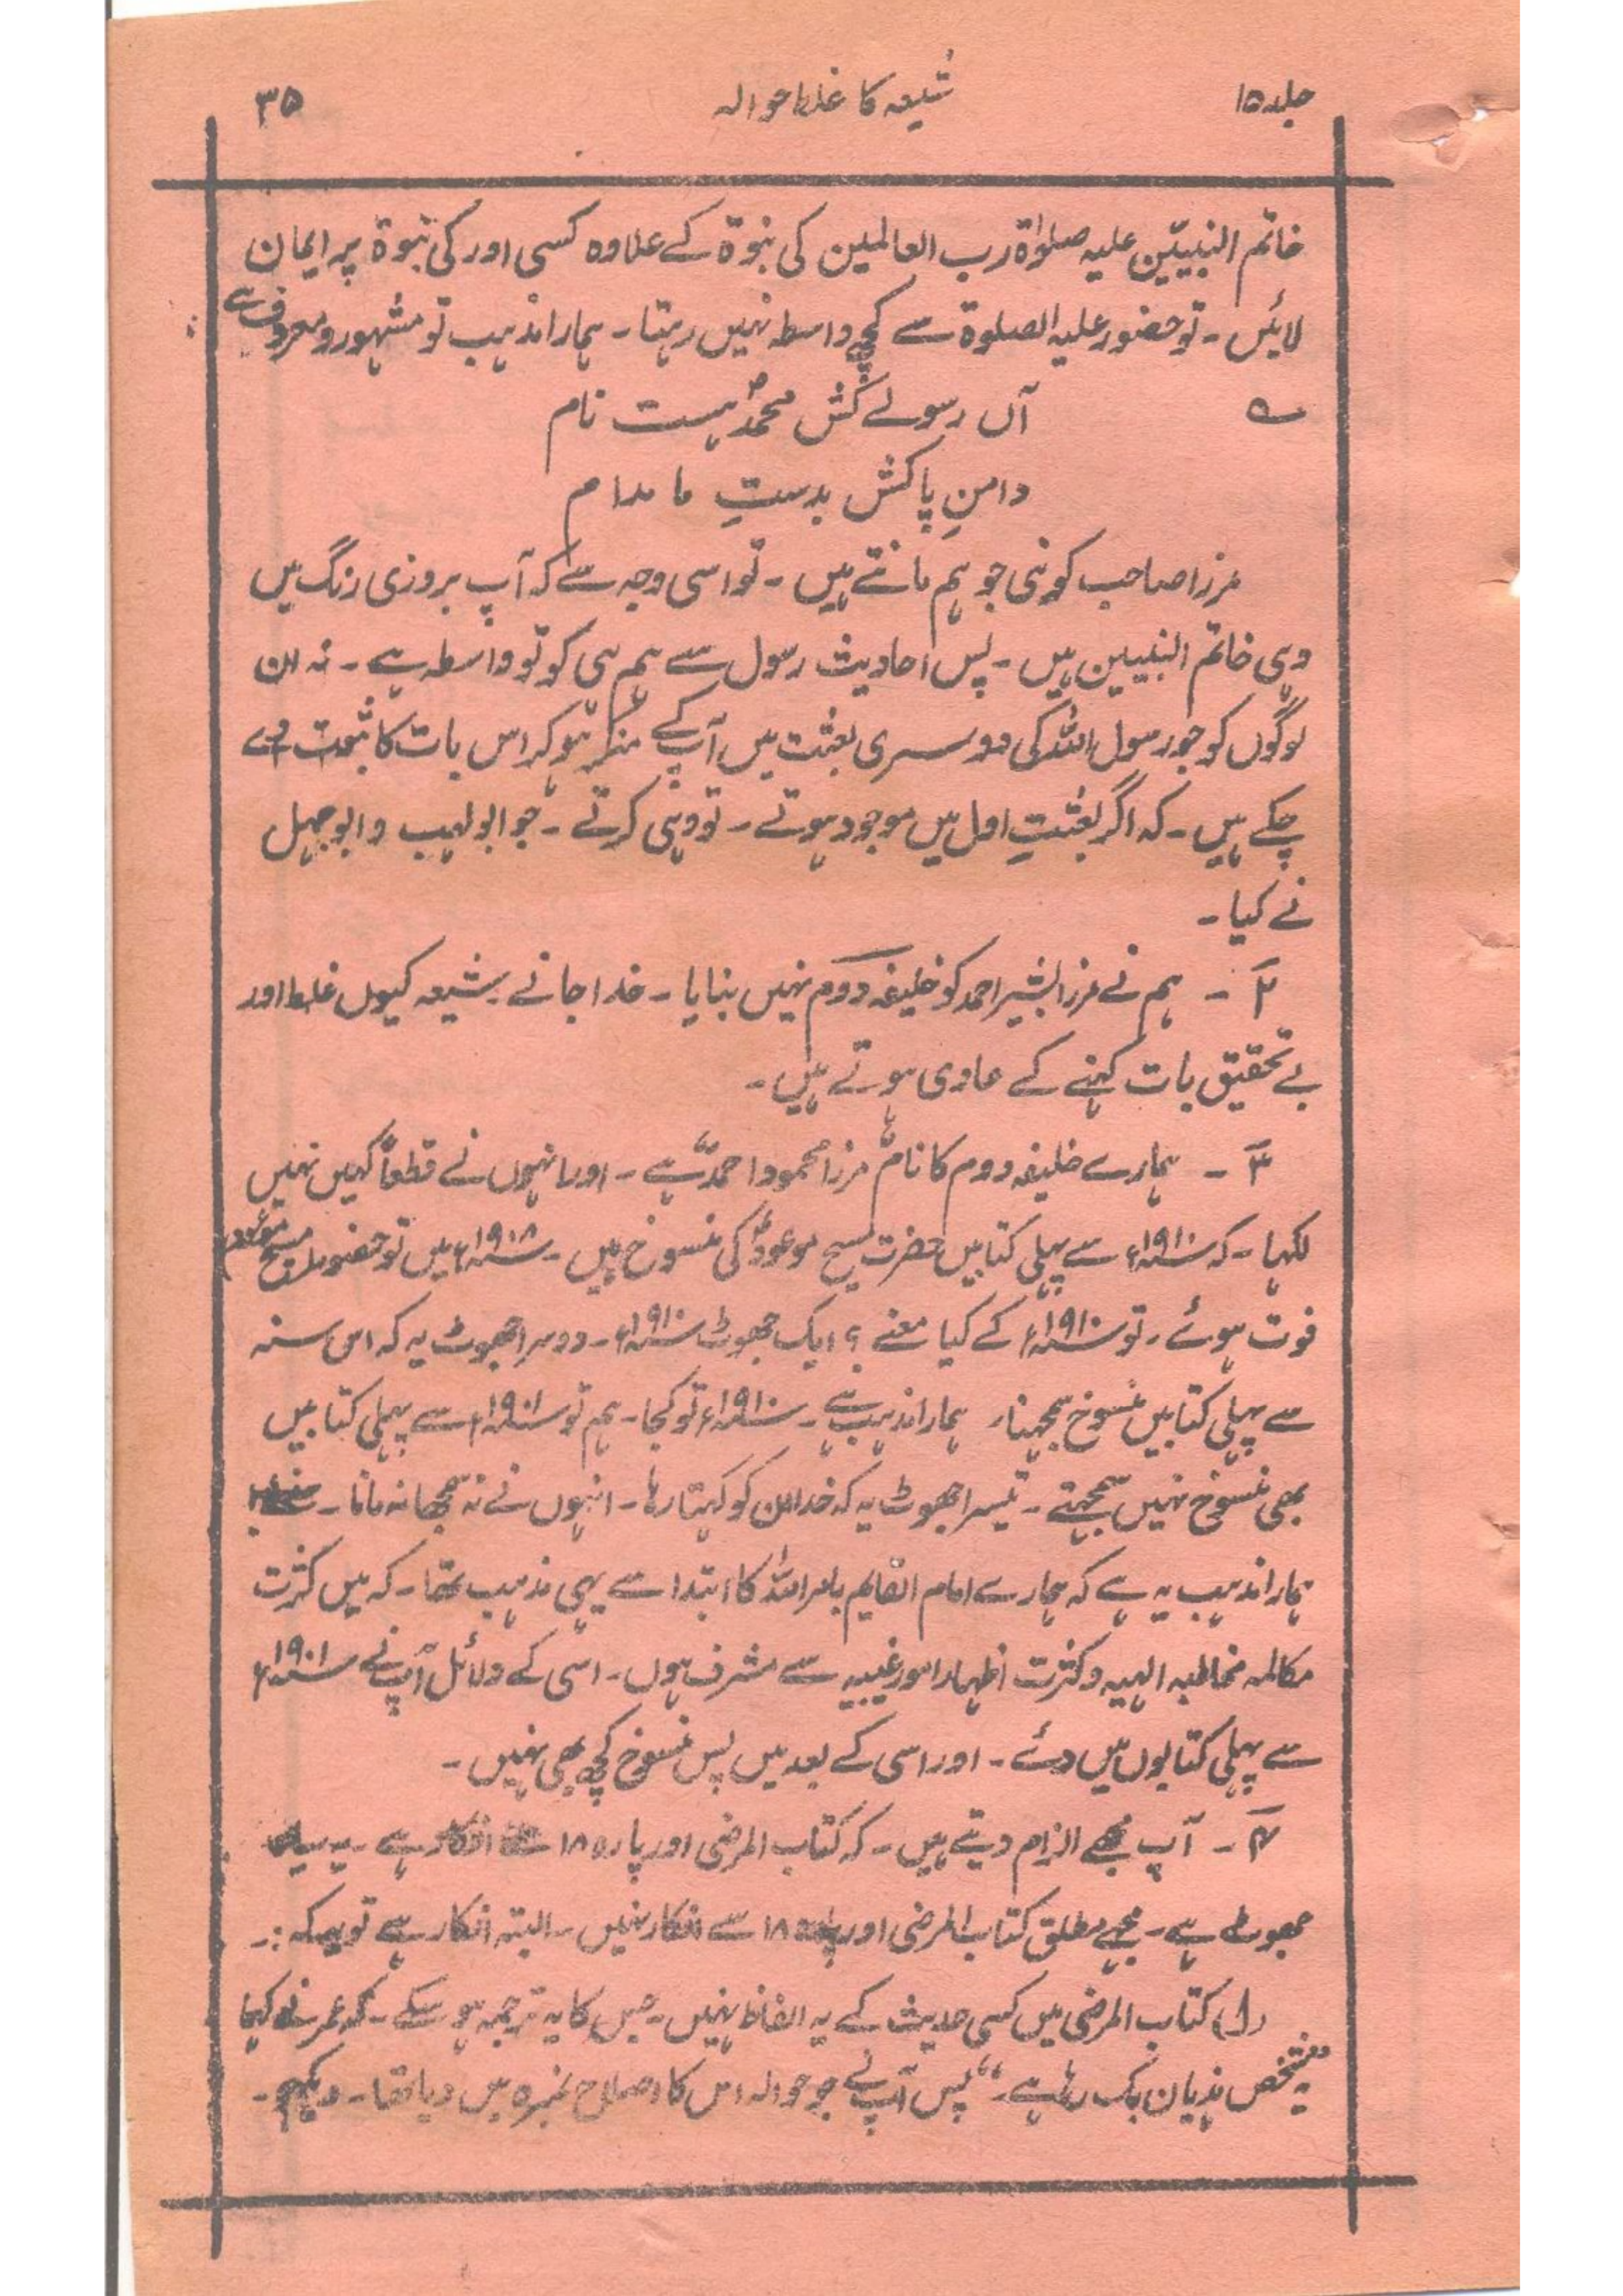 جلد ۱۵
شیعہ کا غلط حوالہ
۳۵
خاتم النبییّن علیہ صلوٰۃ رب العالمین کی نبوۃ کے علاوہ کسی اور کی نبوۃ پر ایمان
لائیں ۔ تو حضور علیہ الصلوۃ سے کچھ واسطہ نہیں رہتا ۔ ہمارا مذہب تو مشہور و معروف ہے
آں رسولے کش محمدؐ ہست نام
دامنِ پاکش بدستِ ما مدام
مرزا صاحب کو نبی جو ہم مانتے ہیں ۔ تو اسی وجہ سے کہ آپ بروزی رنگ میں
وہی خاتم النبیین ہیں ۔ پس احادیث رسول سے ہم ہی کو تو واسطہ ہے ۔ نہ ان
لوگوں کو جو رسول اللہ کی دوسری بعثت میں آپ کے منکر ہو کر اس بات کا ثبوت دے
چکے ہیں ۔ کہ اگر بعثتِ اول میں موجود ہوتے ۔ تو وہی کرتے ۔ جو ابولہب و ابوجہل
نے کیا ۔
۲ ۔ ہم نے مرزا بشیر احمد کو خلیفہ دوم نہیں بنایا ۔ خدا جانے شیعہ کیوں غلط اور
بے تحقیق بات کہنے کے عادی ہوتے ہیں ۔
۳ ۔ ہمارے خلیفہ دوم کا نام "مرزا محمود احمد" ہے ۔ اور انہوں نے قطعاً کہیں نہیں
لکھا ۔ کہ ۱۹۱۰ء سے پہلی کتابیں حضرت مسیح موعودؑ کی منسوخ ہیں ۔ ۱۹۰۸ء میں تو حضور (مسیح موعود)
فوت ہوئے ۔ تو ۱۹۱۰ء کے کیا معنے ؟ ایک جھوٹ ۱۹۱۰ء ۔ دوسرا جھوٹ یہ کہ اس سنہ
سے پہلی کتابیں منسوخ سمجھنا ۔ ہمارا مذہب ہے ۔ ۱۹۱۰ء تو کجا ۔ ہم تو ۱۹۰۱ء سے پہلی کتابیں
بھی منسوخ نہیں سمجھتے ۔ تیسرا جھوٹ یہ کہ خدا ان کو کہتا رہا ۔ انہوں نے نہ سمجھا نہ مانا ۔
ہمارا مذہب یہ ہے کہ ہمارے امام القایم بامر اللہ کا ابتدا سے یہی مذہب تھا ۔ کہ میں کثرت
مکالمہ مخاطبہ الہیہ و کثرت اظہار امور غیبیہ سے مشرف ہوں ۔ اسی کے دلائل آپ نے ۱۹۰۱ء
سے پہلی کتابوں میں دئے ۔ اور اسی کے بعد میں پس منسوخ کچھ بھی نہیں ۔
۴ ۔ آپ مجھے الزام دیتے ہیں ۔ کہ کتاب المرضی اور پارہ ۱۸ سے انکار ہے ۔ یہ
جھوٹ ہے ۔ مجھے مطلق کتاب المرضی اور پارہ ۱۸ سے انکار نہیں ۔ البتہ انکار ہے تو یہ کہ :۔
(۱) کتاب المرضی میں کسی حدیث کے یہ الفاظ نہیں ۔ جس کا یہ ترجمہ ہو سکے ۔ کہ عمر نے کہا
"یہ شخص ہذیان بک رہا ہے ۔" پس آپ نے جو حوالہ اس کا اصلاح نمبر ۵ میں دیا تھا ۔ دیکھو ۔